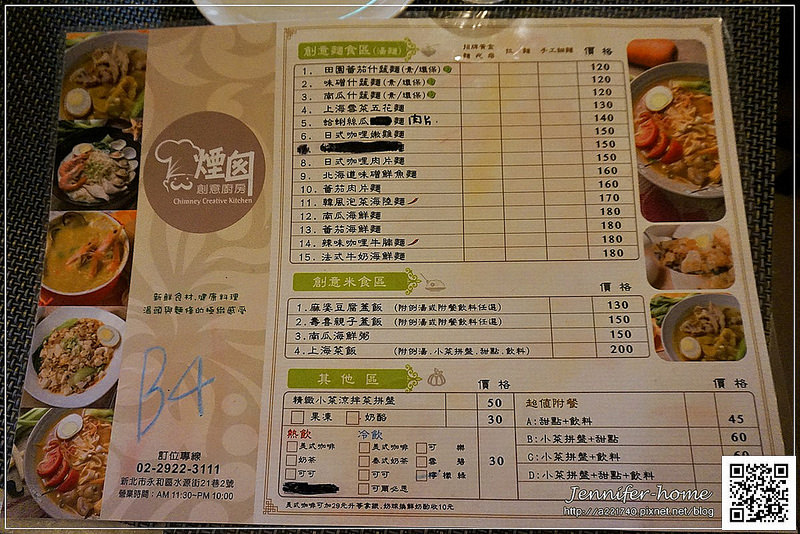 煙囪
創意廚房
Chimney Creative Kitchen
新鮮食材,健康料理
湯頭與麵條的極緻感受
B4
訂位專線
02-2922-3111
新北市永和區水源街21巷2號
營業時間:AM 11:30~PM 10:00
創意麵食區(湯麵) 招牌黃金 拉麵 手工甜麵 價格
1. 田園番茄什蔬麵(素/環保) 120
2. 味磳什蔬麵(素/環保) 120
3. 南瓜什蔬麵(素/環保) 120
4. 上海雪菜五花麵 130
5. 蛤蜊絲瓜 麵 肉片 140
6. 日式咖哩嫩雞麵 150
150
8. 日式咖哩肉片麵 150
9. 北海道味磳鮮魚麵 160
10. 番茄肉片麵 160
11. 韓風泡菜海陸麵 170
12. 南瓜海鮮麵 180
13. 番茄海鮮麵 180
14. 辣味咖哩牛腩麵 180
15. 法式牛奶海鮮麵 180
創意米食區 價格
1. 麻婆豆腐蓋飯 (附例湯或附餐飲料任選) 130
2. 壽喜親子蓋飯 (附例湯或附餐飲料任選) 150
3. 南瓜海鮮粥 150
4. 上海菜飯 (附例湯.小菜拼盤.甜點.飲料) 200
其他區 價格
精緻小菜涼拌菜拼盤 50
果凍 奶酪 30
熱飲 冷飲
美式咖啡 美式咖啡 可樂
奶茶 泰式奶茶 雪碧 30
可可 可可 檸檬綠
可爾必思
美式咖啡可加20元升等拿鐵,奶球換鮮奶酌收10元
價格
超值附餐
A:甜點+飲料 45
B:小菜拼盤+甜點 60
C:小菜拼盤+飲料 60
D:小菜拼盤+甜點+飲料
Jennifer-home
http://a221740.pixnet.net/blog